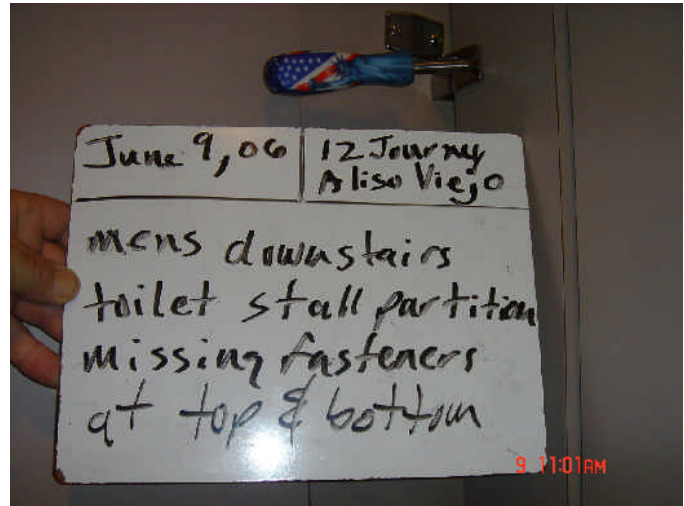 June 9, 06
12 Journy
Aliso Viejo
mens downstairs
toilet stall partition
missing fasteners
at top & bottom
9 11:01AM